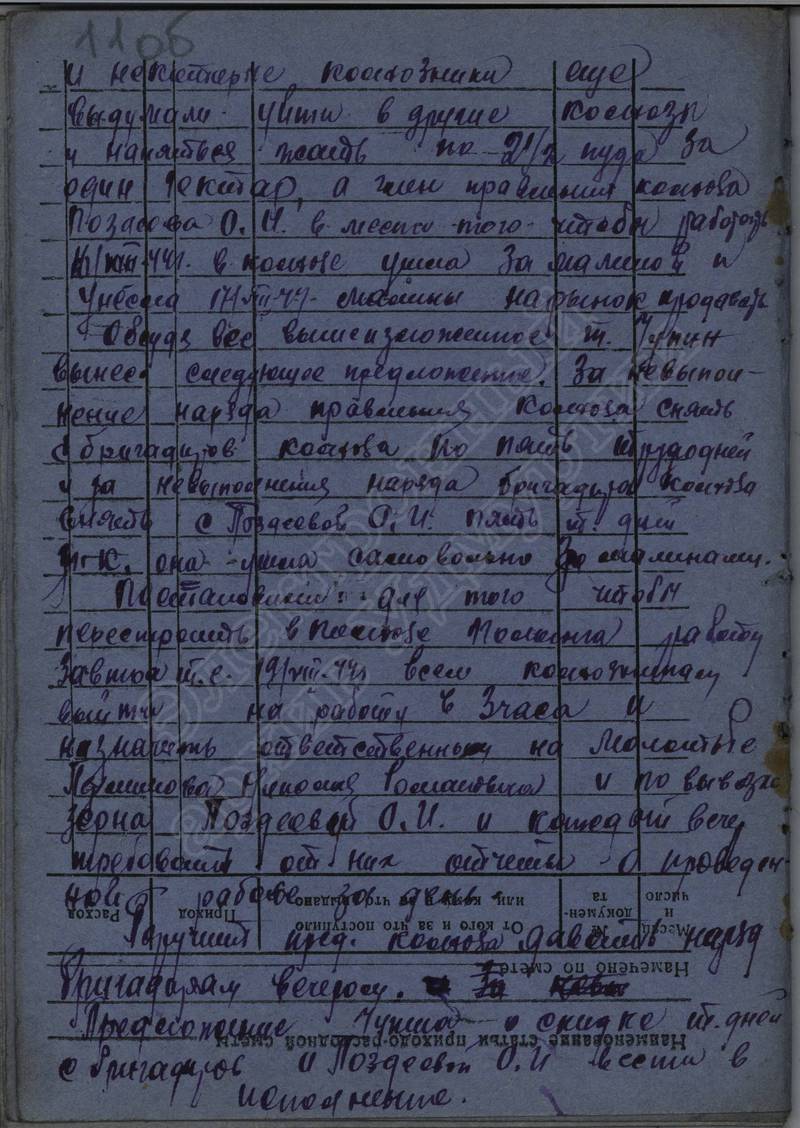 110б
и некоторые колхозники еще
выдумали уйти в другие колхозы
и наняться жать по 2 1/2 пуда за
один гектар, а член правления колхоза
Поздеева О.И. в место того чтобы работать
в колхозе ушла за малиной и
унесла 17/VIII-44 на рынок продавать
Обсудя все вышеизложенное т. Чупин
вынес следующее предложение. За невыпол-
нение наряда правления колхоза снять
с бригадиров колхоза по пять трудодней
и за невыполнения наряда бригадира колхоза
снять с Поздеевой О.И. пять т. дней
т.к. она ушла самовольно за малинами.
Постановили: для того чтобы
перестроить в колхозе работу
завтра т.е. 19/VIII-44г всем колхозникам
выйти на работу в 3 часа и
назначить ответственным на молотьбе
Романовича и по вывозке
зерна Поздеевой О.И. и каждый вечер
требовать от них отчеты о проведен-
ной работе за день.
Поручить пред. колхоза давать наряд
бригадирам вечером.
Предложение Чупина о скидке т. дней
с бригадиров и Поздеевой О.И. ввести в
исполнение.
Месяц и число
№ докумен-та
От кого и за что поступило или кому и за что выдано
Приход
Расход
Намечено по смете
Наименование статьи приходо-расходной сметы